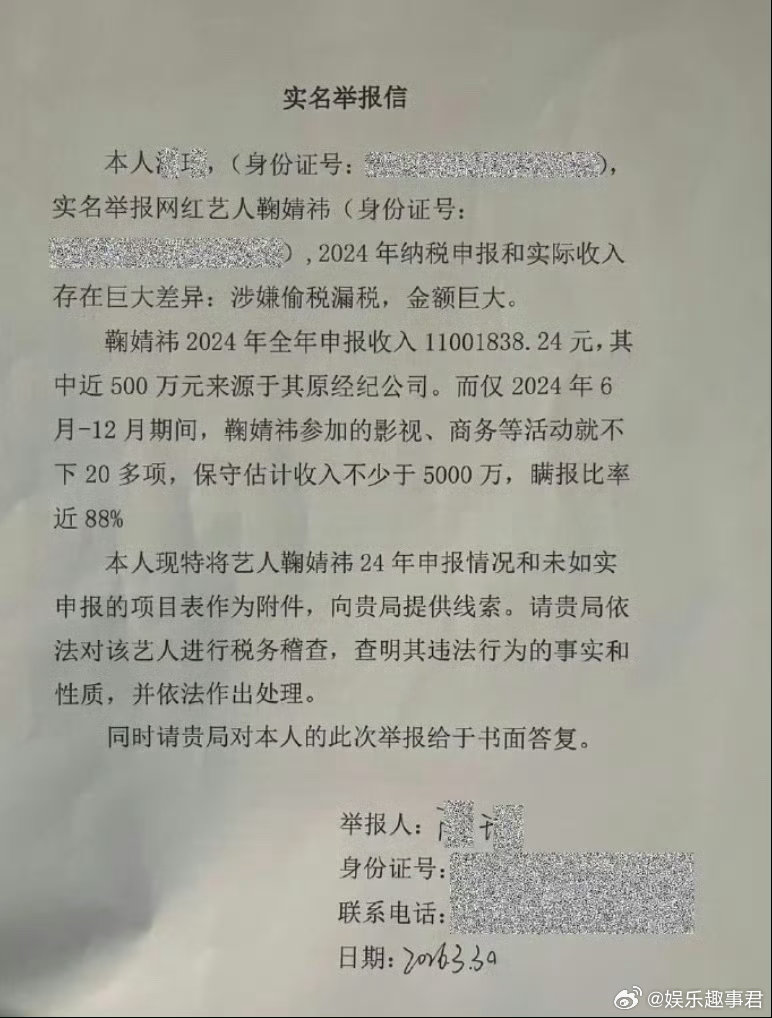 实名举报信
本人，（身份证号：），
实名举报网红艺人鞠婧祎（身份证号：
），2024年纳税申报和实际收入
存在巨大差异：涉嫌偷税漏税，金额巨大。
鞠婧祎2024年全年申报收入11001838.24元，其
中近500万元来源于其原经纪公司。而仅2024年6
月-12月期间，鞠婧祎参加的影视、商务等活动就不
下20多项，保守估计收入不少于5000万，瞒报比率
近88%
本人现特将艺人鞠婧祎24年申报情况和未如实
申报的项目表作为附件，向贵局提供线索。请贵局依
法对该艺人进行税务稽查，查明其违法行为的事实和
性质，并依法作出处理。
同时请贵局对本人的此次举报给于书面答复。
举报人：
身份证号：
联系电话：
日期：2026.3.30
@娱乐趣事君